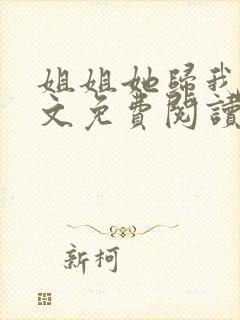 姐姐她歸我
文免費閱讀
新柯